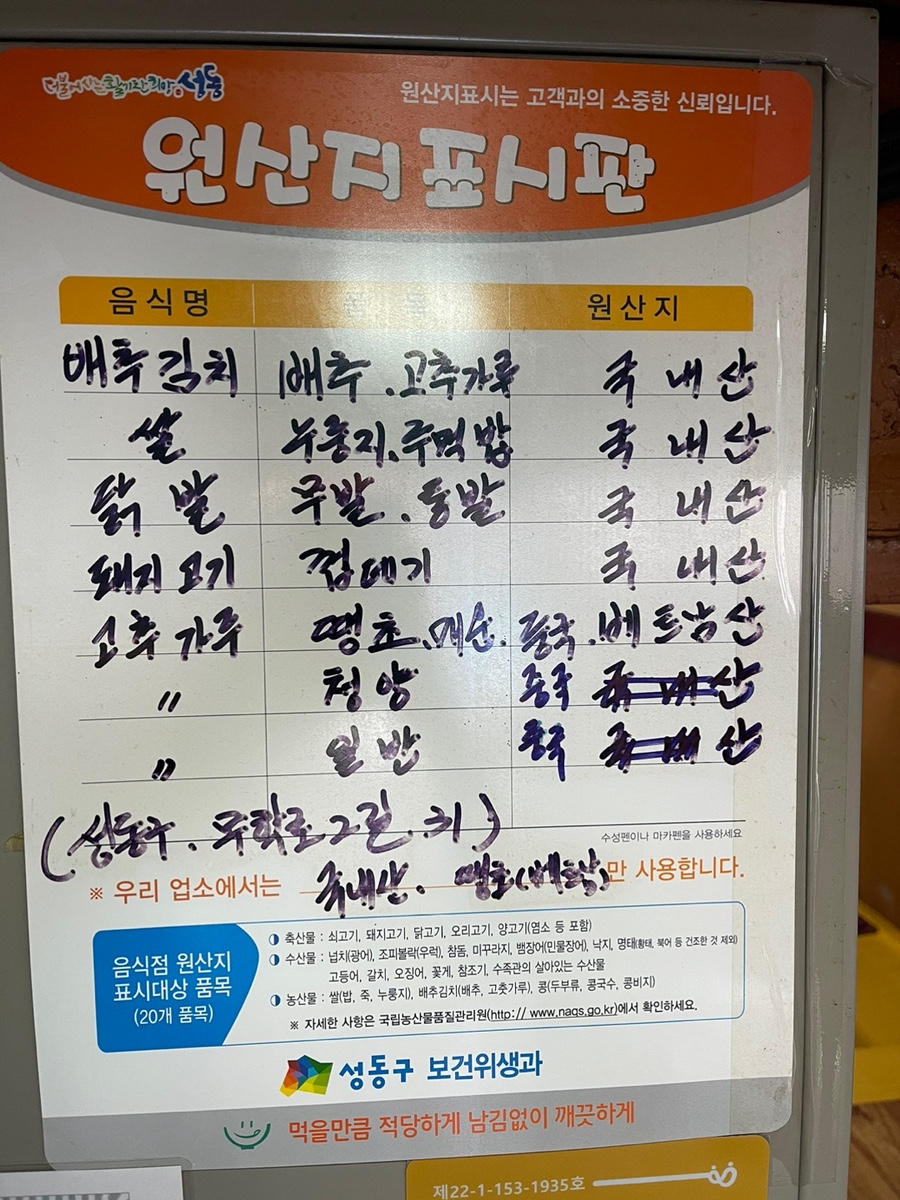 더불어사는 활기찬 희망 성동
원산지표시는 고객과의 소중한 신뢰입니다.
원산지표시판
음식명 품목 원산지
배추김치 배추.고추가루 국내산
쌀 누룽지.주먹밥 국내산
닭발 무발.통발 국내산
돼지고기 껍데기 국내산
고추가루 땡초.매운. 중국.베트남산
〃 청양 중국 국내산
〃 일반 중국 국내산
(성동구.무학로2길.31)
수성펜이나 마카펜을 사용하세요
※ 우리 업소에서는 국내산. 땡초(베트남)만 사용합니다.
음식점 원산지
표시대상 품목
(20개 품목)
축산물 : 쇠고기, 돼지고기, 닭고기, 오리고기, 양고기(염소 등 포함)
수산물 : 넙치(광어), 조피볼락(우럭), 참돔, 미꾸라지, 뱀장어(민물장어), 낙지, 명태(황태, 북어 등 건조한 것 제외)
고등어, 갈치, 오징어, 꽃게, 참조기, 수족관의 살아있는 수산물
농산물 : 쌀(밥, 죽, 누룽지), 배추김치(배추, 고춧가루), 콩(두부류, 콩국수, 콩비지)
※ 자세한 사항은 국립농산물품질관리원(http:// www.naqs.go.kr)에서 확인하세요.
성동구 보건위생과
먹을만큼 적당하게 남김없이 깨끗하게
제22-1-153-1935호